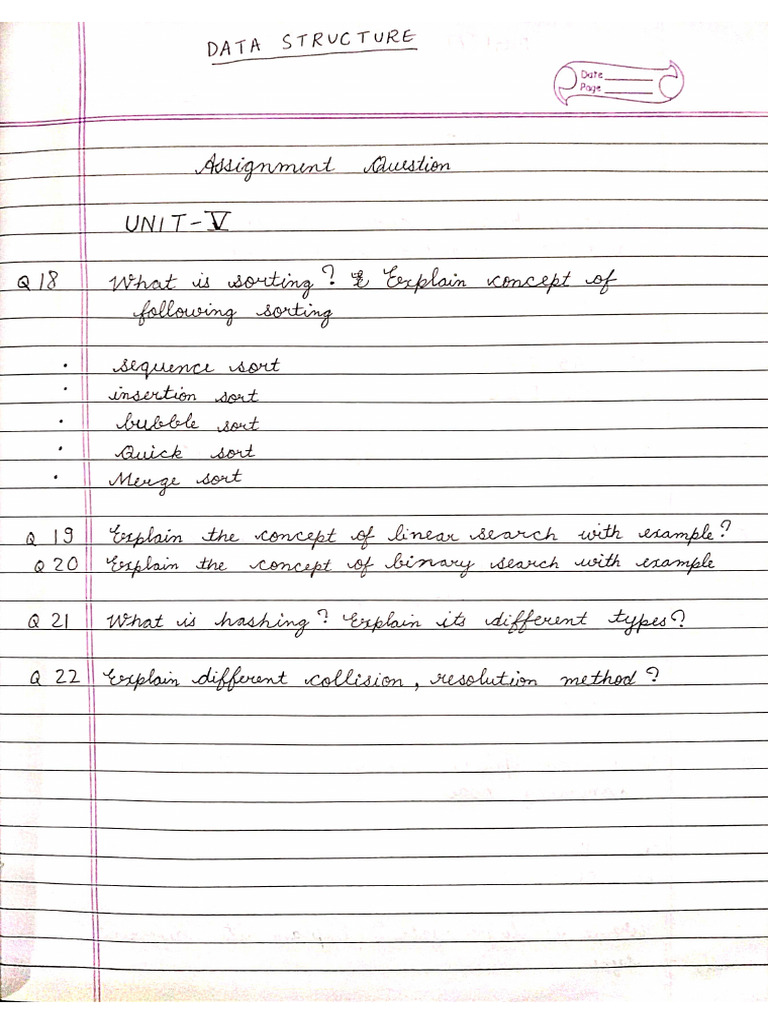 DATA STRUCTURE
Date
Page
Assignment Question
UNIT-V
Q 18 What is sorting? & Explain concept of
following sorting
• sequence sort
• insertion sort
• bubble sort
• Quick sort
• Merge sort
Q 19 Explain the concept of linear search with example?
Q 20 Explain the concept of binary search with example
Q 21 What is hashing? Explain its different types?
Q 22 Explain different collision, resolution method?